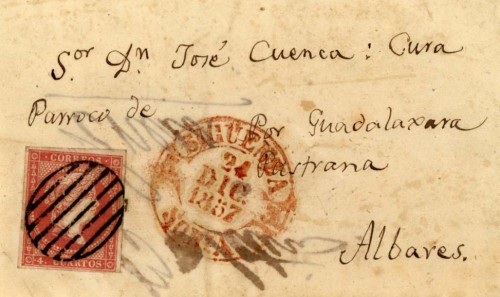 Sor Dn José Cuenca : Cura
Parroco de
Por Guadalaxara
Pastrana
Albares.
24
DIC
1857
CORREOS
4. CUARTOS